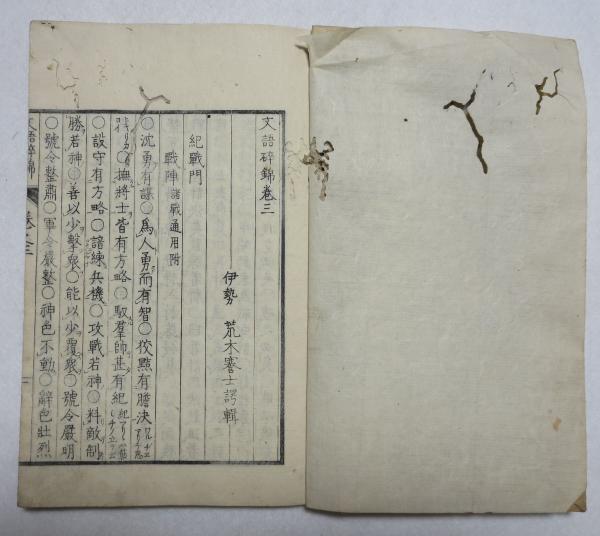 文語碎錦卷三
伊勢 荒木蹇士諤輯
紀戰門
戰陣 諸戰通用附
○沈勇有謀○爲人勇而有智○狡黠有膽決
○撫將士皆有方略○馭羣帥甚有紀
○設守有方略○諳練兵機○攻戰若神○料敵制
勝若神○善以少擊衆○能以少覆衆○號令嚴明
○號令整肅○軍令嚴整○神色不動○辭色壯烈
文語碎錦 卷之三